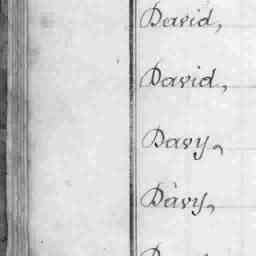 David,
David,
Davy,
Davy,